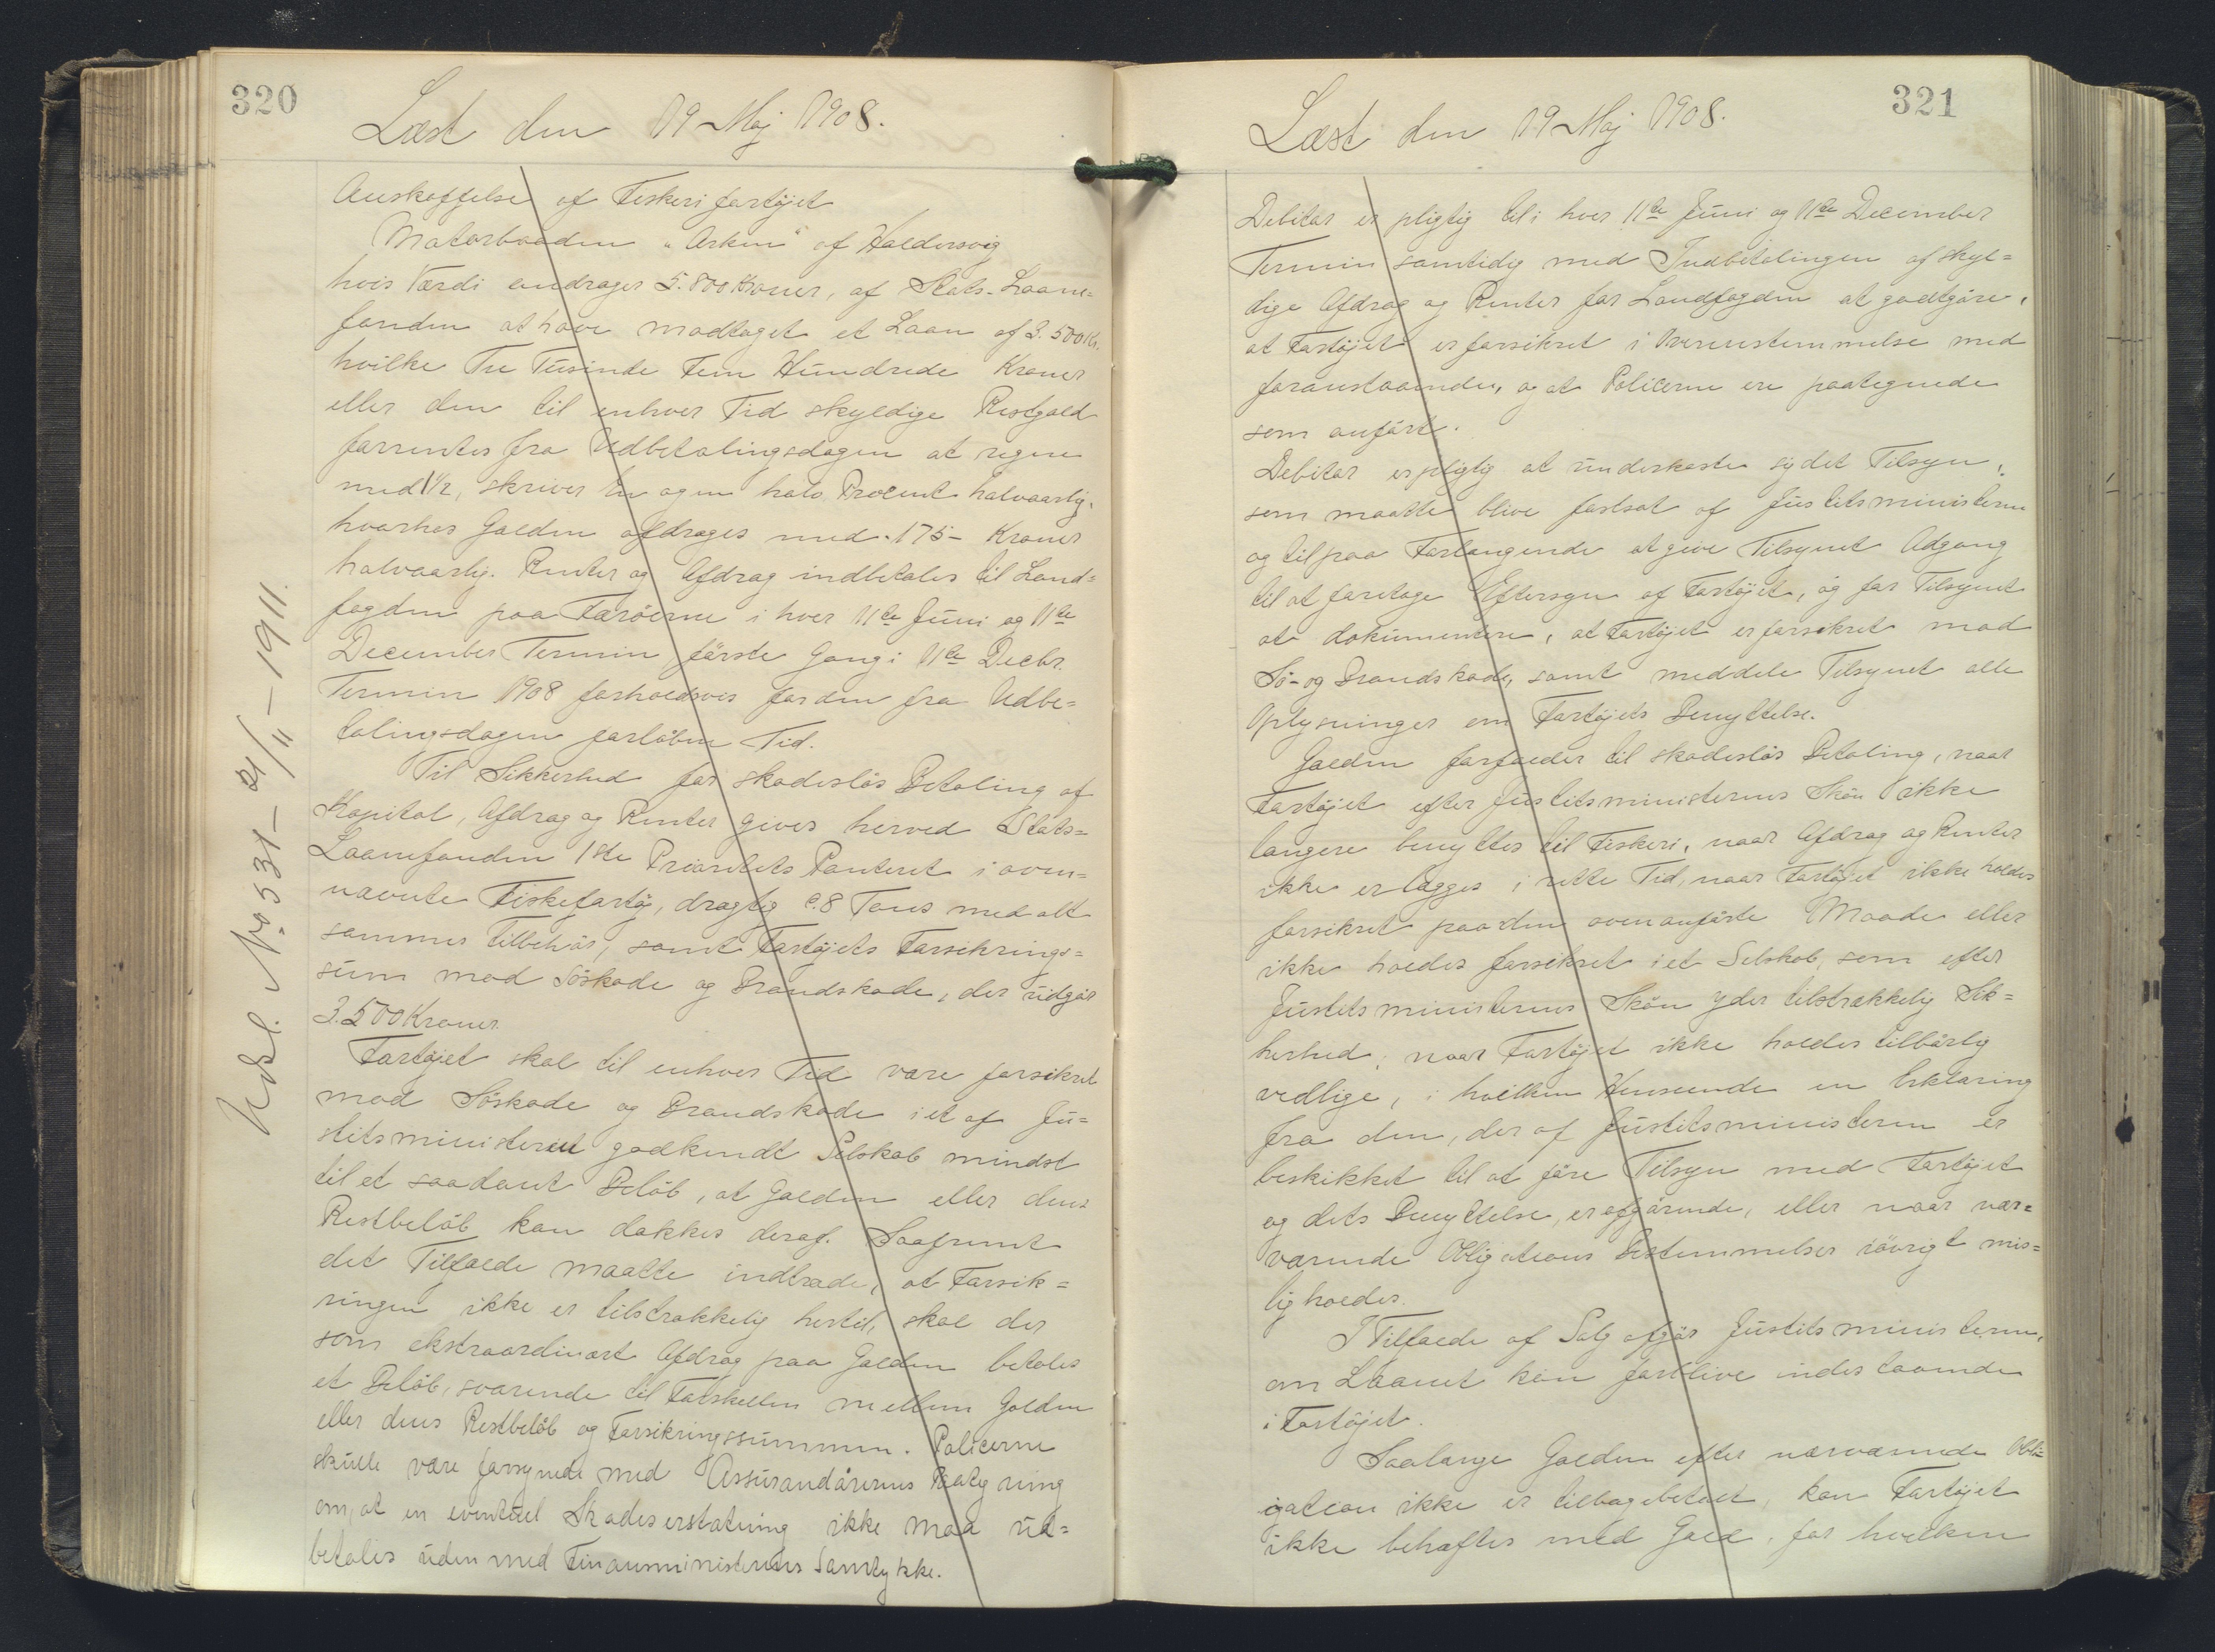 320
Læst den 19 Maj 1908.
Anskaffelse af Fiskerifartøjet
Motorbaaden "Arken" af Haldersvig
hvis Værdi andrager 5.800 Kroner, af Stats-Laane-
fonden at have modtaget et Laan af 3.500 Kr.
hvilke Tre Tusinde Fem Hundrede Kroner
eller den til enhver Tid skyldige Restgæld
forrentes fra Udbetalingsdagen at regne
med 1½, skriver En og en halv Procent halvaarlig,
hvorhos Gælden afdrages med 175- Kroner
halvaarlig. Renter og Afdrag indbetales til Land-
fogden paa Færöerne i hver 11te Juni og 11te
December Termin første Gang i 11te Decbr.
Termin 1908 forholdsvis for den fra Udbe-
talingsdagen forløbne Tid.
Til Sikkerhed for skadesløs Betaling af
Kapital, Afdrag og Renter gives herved Stats-
Laanefonden 1ste Prioritets Panteret i oven-
nævnte Fiskefartøj, drægtig c. 8 Tons med alt
sammes Tilbehør, samt Fartøjets Forsikrings-
sum mod Söskade og Brandskade, der udgør
3.500 Kroner.
Fartøjet skal til enhver Tid være forsikret
mod Söskade og Brandskade i et af Ju-
stitsministeriet godkendt Selskab mindst
til et saadant Beløb, at Gælden eller dens
Restbeløb kan dækkes deraf. Saafremt
det Tilfælde maatte indtræde, at Forsik-
ringen ikke er tilstrækkelig hertil, skal der
som ekstraordinært Afdrag paa Gælden betales
et Beløb, svarende til Forskellen mellem Gælden
eller dens Restbeløb og Forsikringssummen. Policerne
skulle være forsynede med Assurandørernes Paategning
om, at en eventuel Skadeserstatning ikke maa ud-
betales uden med Finansministeriets Samtykke.
Udsl. No 531- 21/11-1911.
321
Læst den 19 Maj 1908.
Debitor er pligtig til i hver 11te Juni og 11te December
Termin samtidig med Indbetalingen af skyl-
dige Afdrag og Renter for Landfogden at godtgøre,
at Fartøjet er forsikret i Overensstemmelse med
foranstaaende, og at Policerne ere paategnede
som anført.
Debitor er pligtig at underkaste sig det Tilsyn,
som maatte blive fastsat af Justitsministeren
og til paa Forlangende at give Tilsynet Adgang
til at foretage Eftersyn af Fartøjet, og for Tilsynet
at dokumentere, at Fartøjet er forsikret mod
Sö- og Brandskade, samt meddele Tilsynet alle
Oplysninger om Fartøjets Benyttelse.
Gælden forfalder til skadesløs Betaling, naar
Fartøjet efter Justitsministerens Skøn ikke
længere benyttes til Fiskeri, naar Afdrag og Renter
ikke erlægges i rette Tid, naar Fartøjet ikke holdes
forsikret paa den ovenanførte Maade eller
ikke holdes forsikret i et Selskab, som efter
Justitsministerens Skøn yder tilstrækkelig Sik-
kerhed, naar Fartøjet ikke holdes tilbørlig
vedlige, i hvilken Henseende en Erklæring
fra den, der af Justitsministeren er
beskikket til at føre Tilsyn med Fartøjet
og dets Benyttelse, er afgørende, eller naar nær-
værende Obligations Bestemmelser iøvrigt mis-
ligholdes.
I Tilfælde af Salg afgør Justitsministeren,
om Laanet kan forblive indestaaende
i Fartøjet.
Saalænge Gælden efter nærværende Obli-
gation ikke er tilbagebetalt, kan Fartøjet
ikke behæftes med Gæld, for hvilken